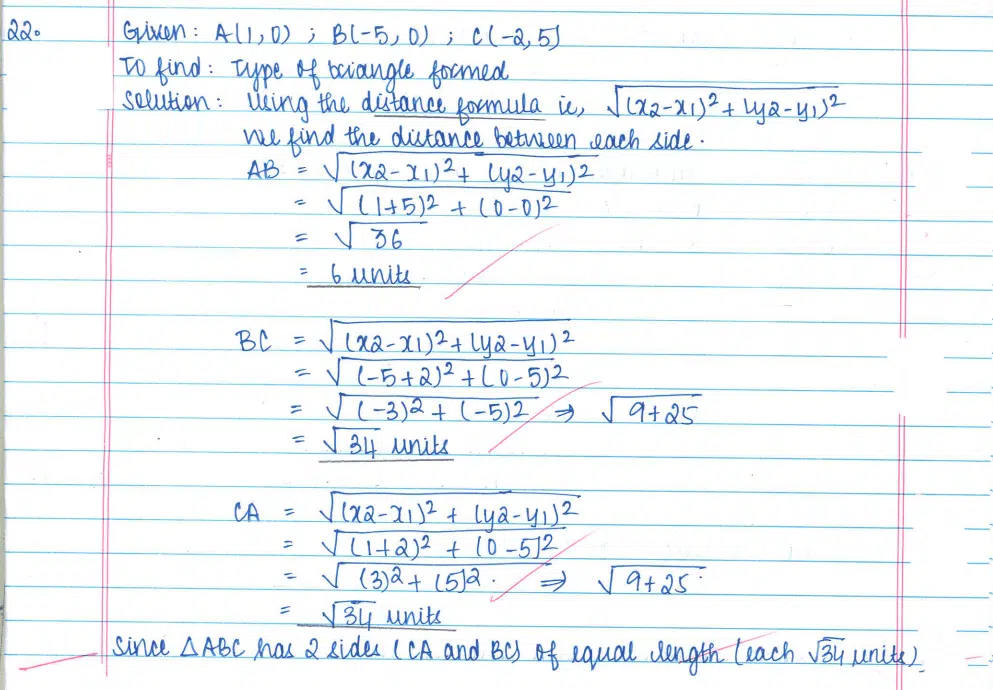 22.
Given: A(1,0) ; B(-5,0) ; C(-2,5)
To find: Type of triangle formed
Solution: Using the distance formula ie, √(x2-x1)²+(y2-y1)²
we find the distance between each side.
AB = √(x2-x1)²+ (y2-y1)²
= √(1+5)² + (0-0)²
= √36
= 6 units
BC = √(x2-x1)²+(y2-y1)²
= √(-5+2)²+(0-5)²
= √(-3)²+(-5)² ⇒ √9+25
= √34 units
CA = √(x2-x1)² + (y2-y1)²
= √(1+2)² + (0-5)²
= √(3)²+(5)². ⇒ √9+25
= √34 units
Since △ABC has 2 sides (CA and BC) of equal length (each √34 units)